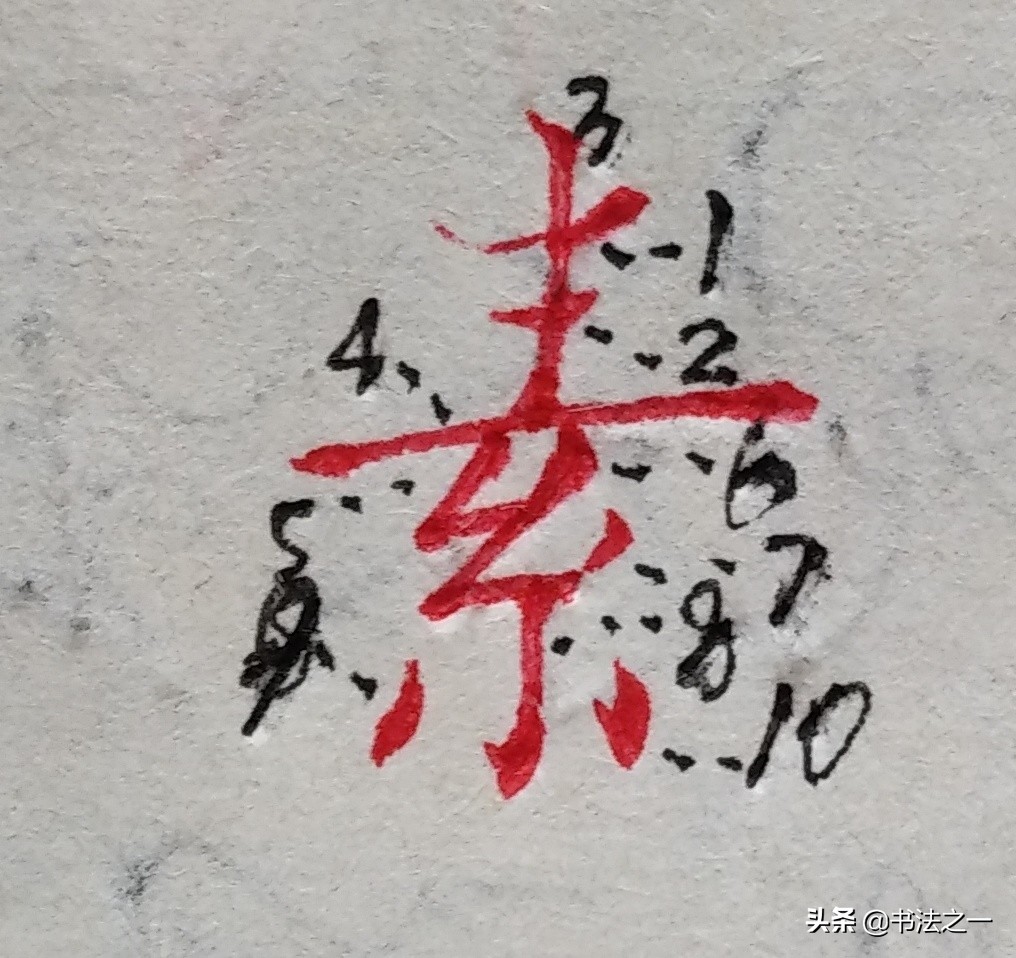 素
3
1
4
2
6
5
7
8
9
10
头条 @书法之一